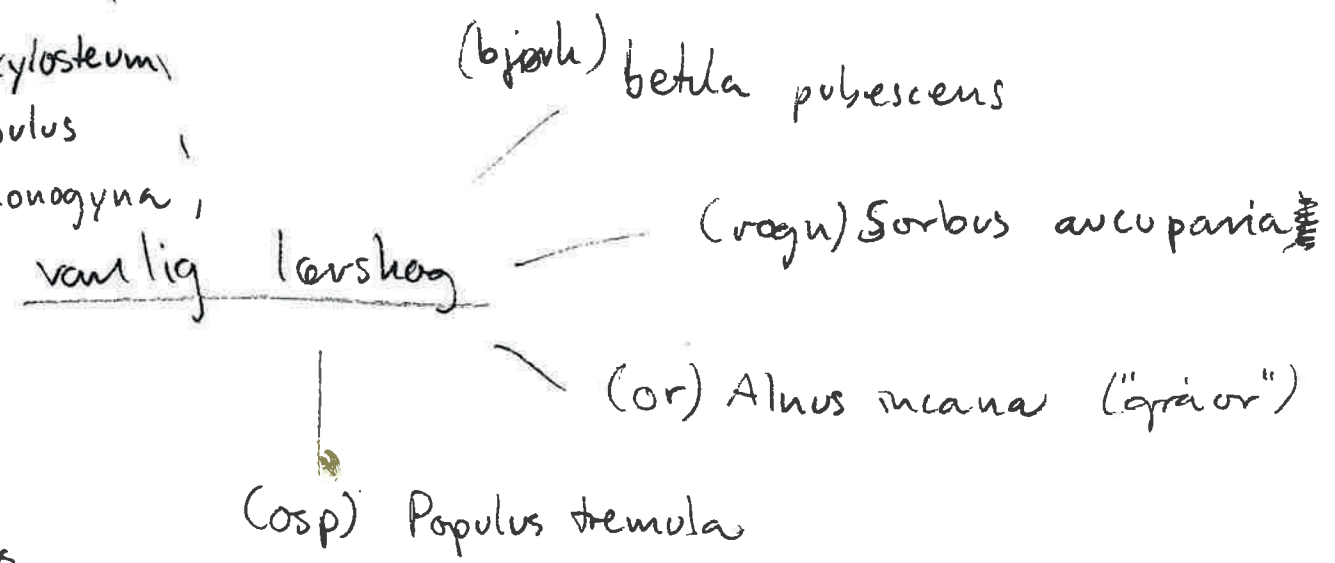 xylosteum,
pulus
monogyna,
(bjørk) betula pubescens
(rogn) Sorbus aucuparia
vanlig løvskog
(or) Alnus incana ("gråor")
(osp) Populus tremula